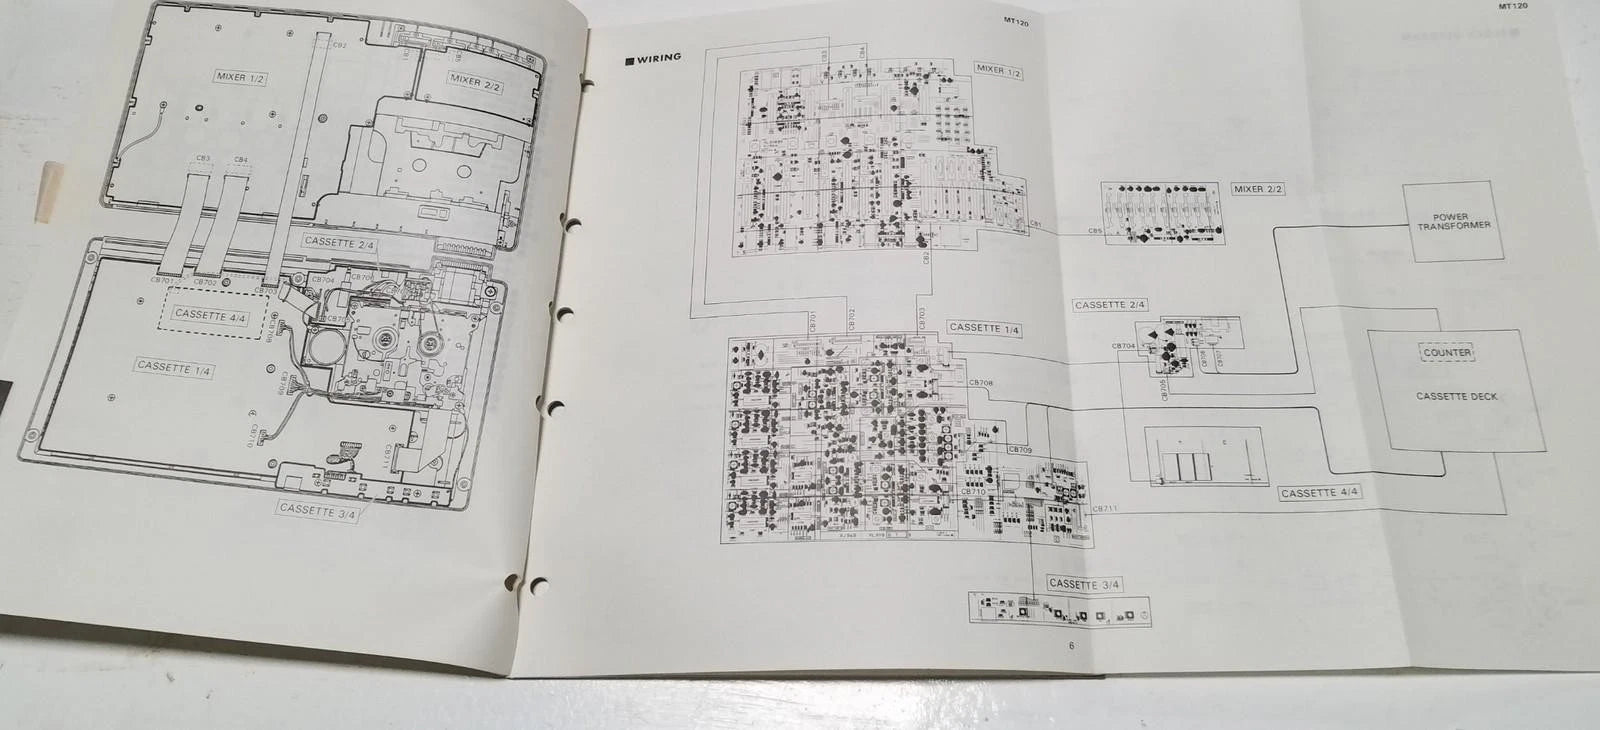 MIXER 1/2
CB2
CB1
CB5
MIXER 2/2
CB3
CB4
CASSETTE 2/4
CB701
CB702
CB703
CB704
CB705
CASSETTE 4/4
CB708
CASSETTE 1/4
CB709
CB710
CB711
CASSETTE 3/4
MT120
■ WIRING
CB3
CB4
MIXER 1/2
CB1
CB5
MIXER 2/2
CB2
POWER
TRANSFORMER
CB701
CB702
CB703
CASSETTE 1/4
CASSETTE 2/4
CB704
CB705
CB706
CB707
COUNTER
CASSETTE DECK
CB708
CB709
CB710
CB711
CASSETTE 4/4
CASSETTE 3/4
6
MT120